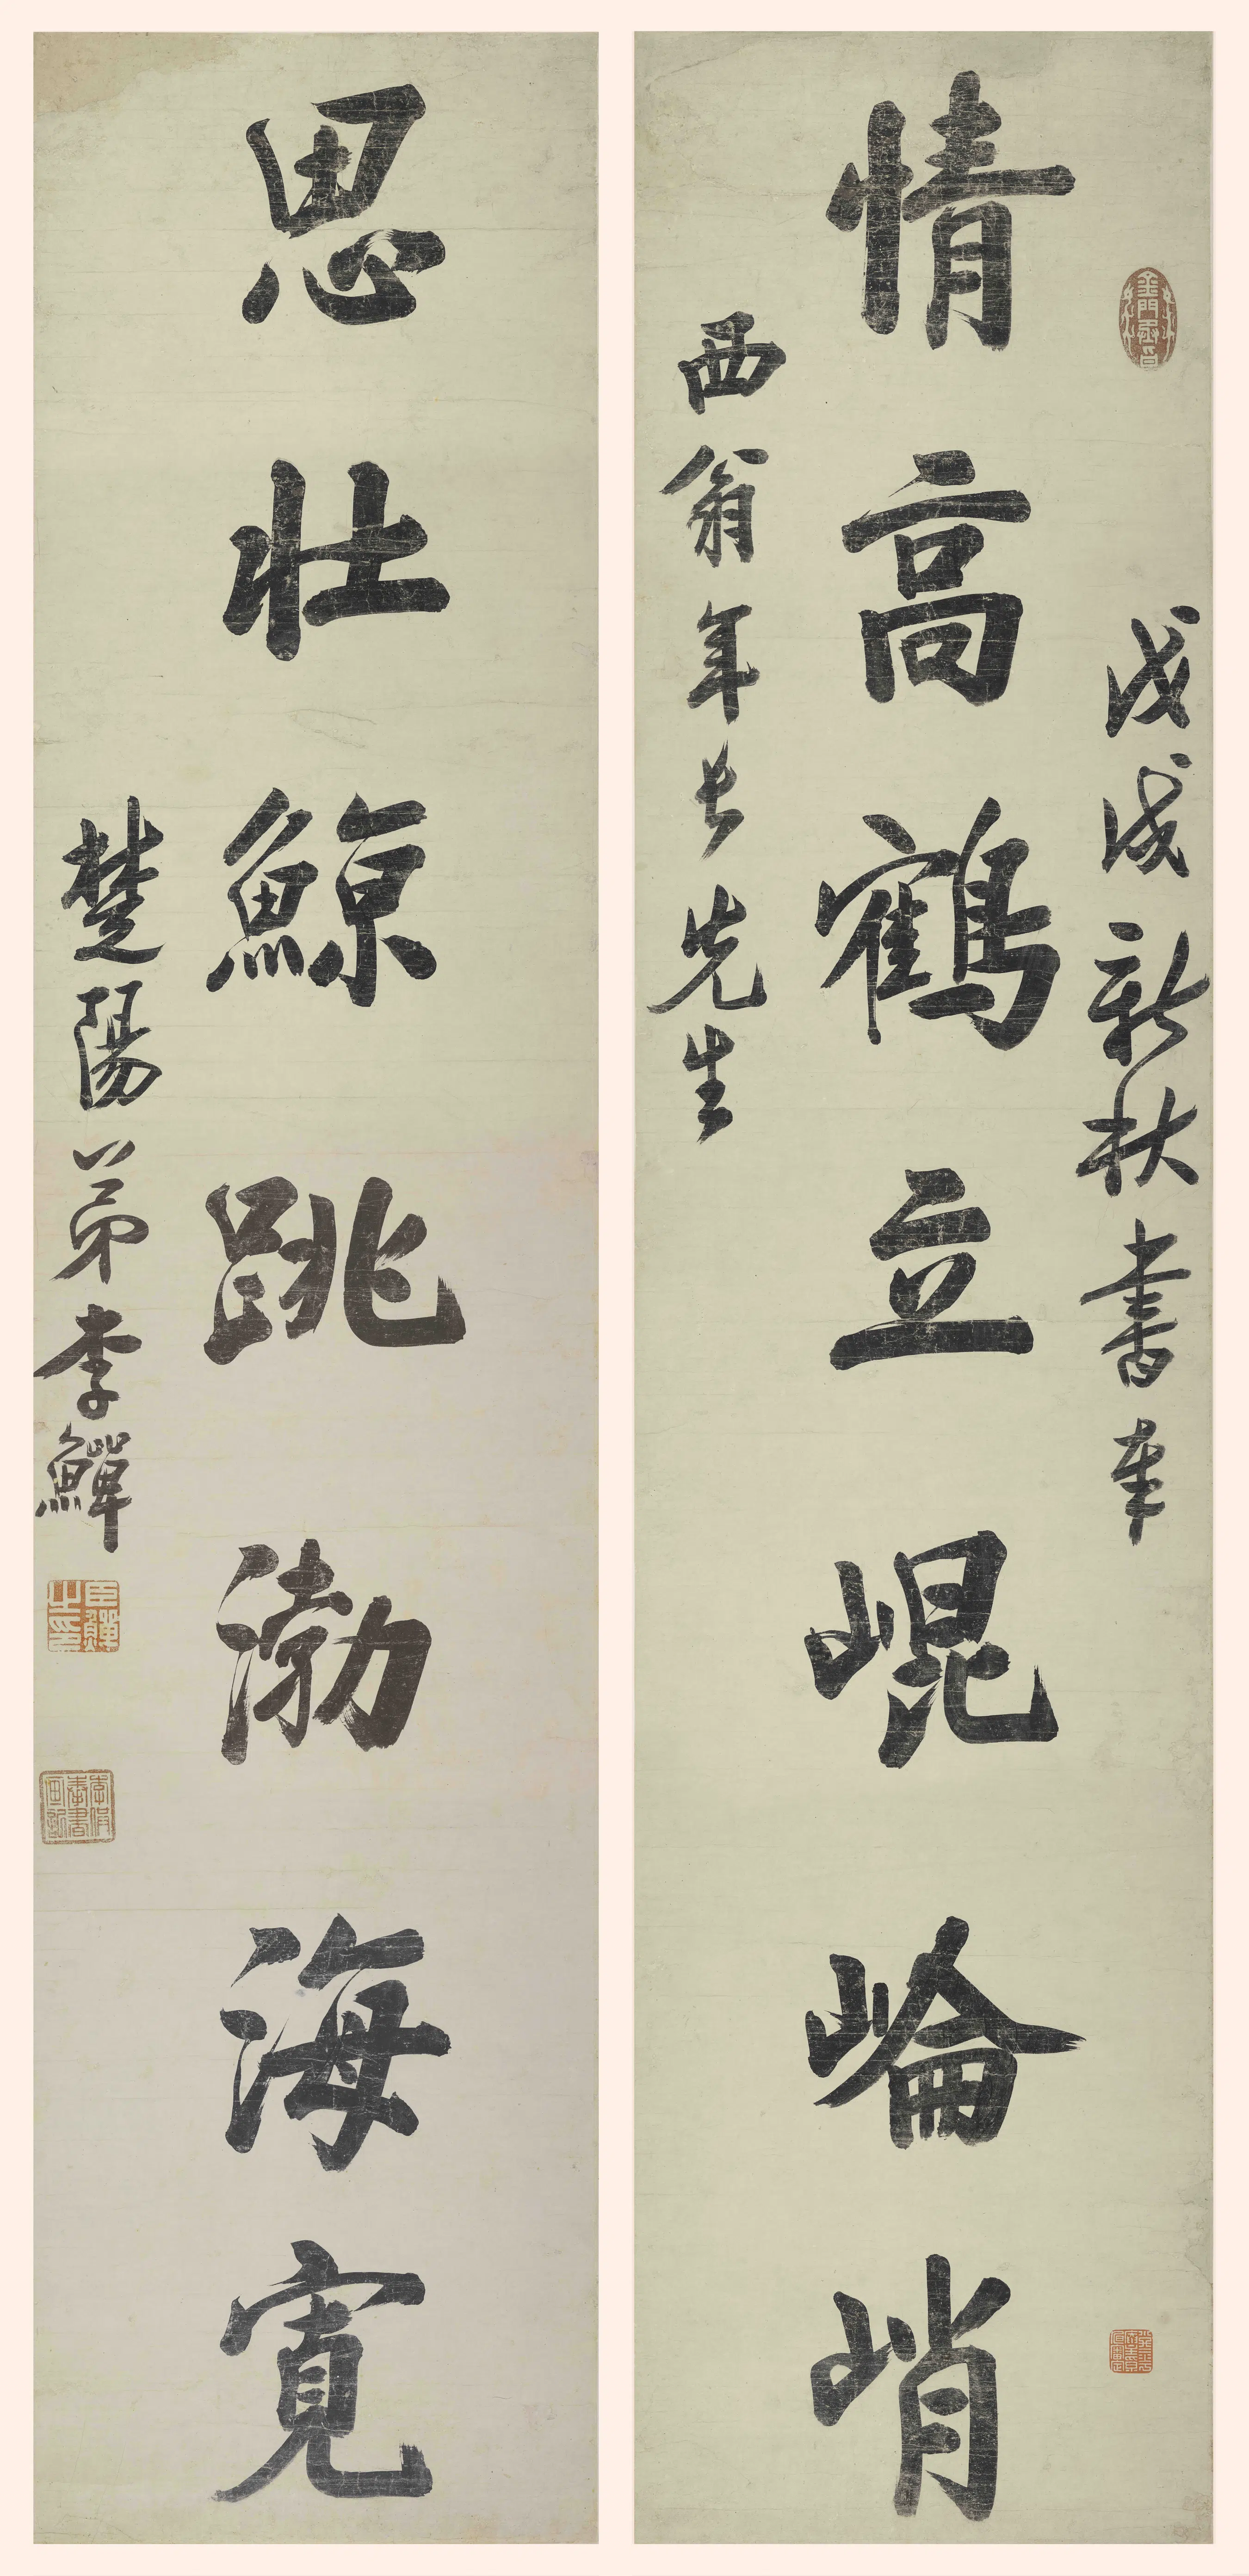 戊戌新秋書奉
情高鶴立崐崘峭
西翁年長先生
思壯鯨跳渤海寬
楚陽弟李鱓
臣鱓之印